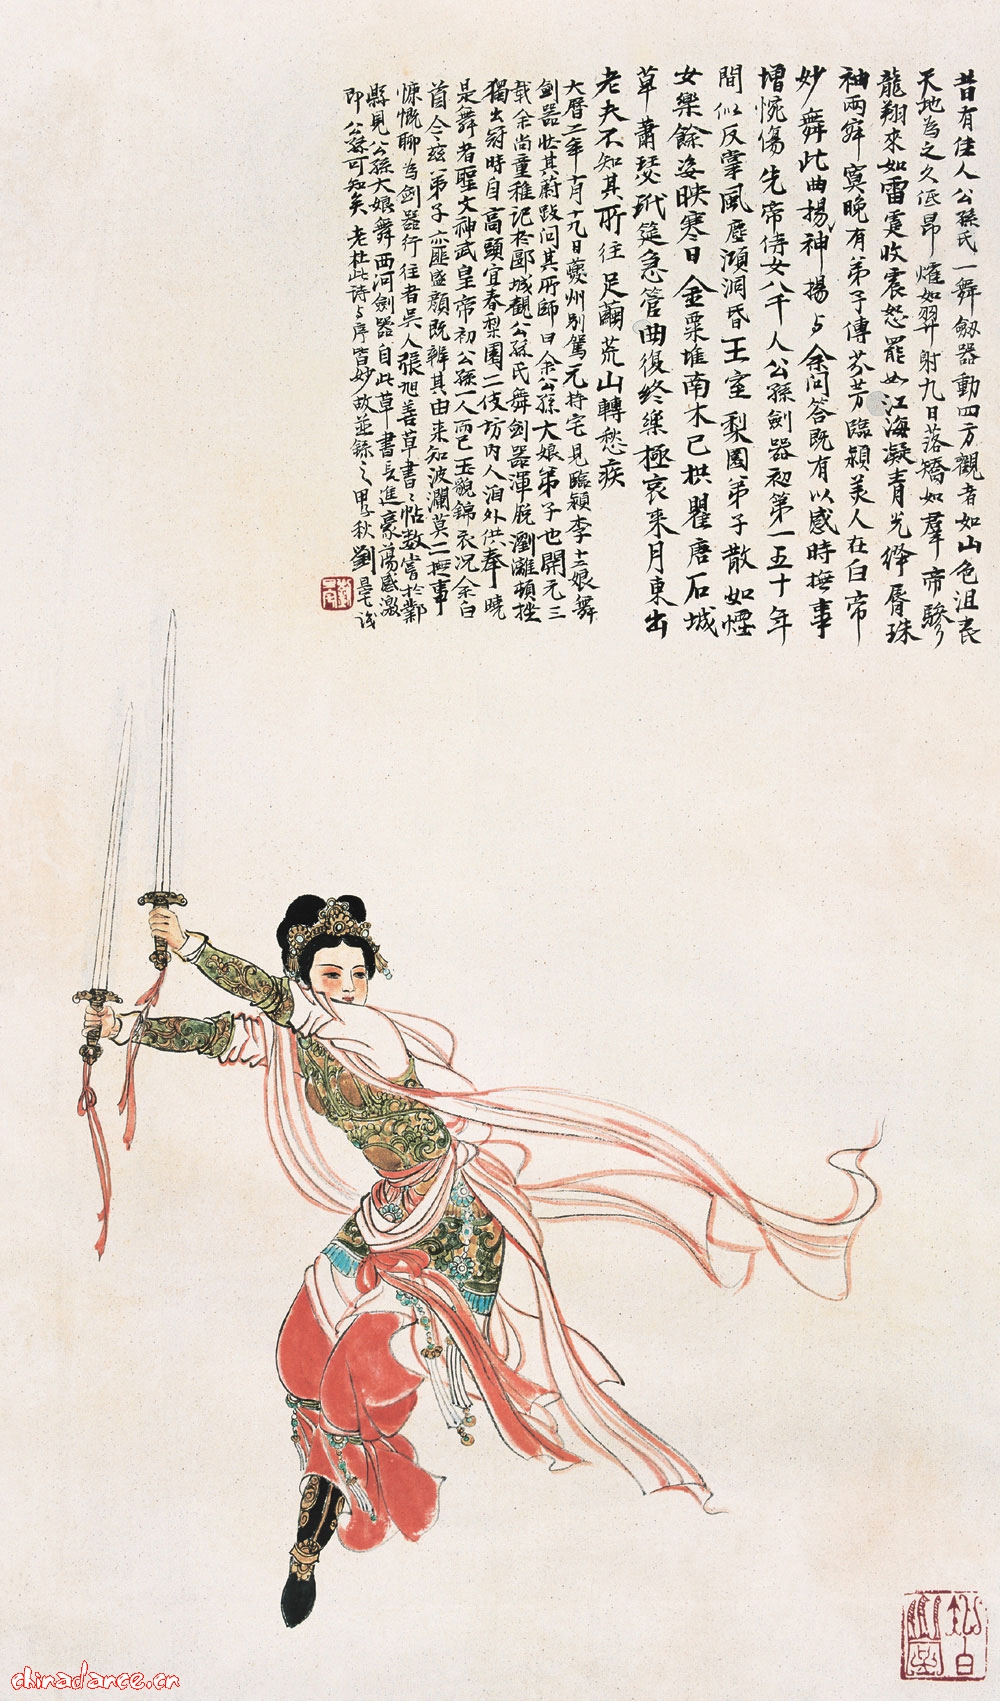 昔有佳人公孫氏一舞劔器動四方觀者如山色沮喪
天地為之久低昂㸌如羿射九日落矯如羣帝驂
龍翔來如雷霆收震怒罷如江海凝青光絳脣珠
袖兩寂寞晚有弟子傳芬芳臨潁美人在白帝
妙舞此曲揚神揚与余問答既有以感時撫事
增惋傷先帝侍女八千人公孫劍器初第一五十年
間似反掌風塵澒洞昏王室梨園弟子散如煙
女樂餘姿映寒日金粟堆南木已拱瞿唐石城
草蕭瑟玳筵急管曲復終樂極哀來月東出
老夫不知其所往足繭荒山轉愁疾
大曆二年十月十九日夔州別駕元持宅見臨潁李十二娘舞
劍器壯其蔚跂問其所師曰余公孫大娘弟子也開元三
載余尚童稚記於郾城觀公孫氏舞劍器渾脫瀏灕頓挫
獨出冠時自高頭宜春梨園二伎坊內人洎外供奉曉
是舞者聖文神武皇帝初公孫一人而已玉貌錦衣況余白
首今茲弟子亦匪盛顏既辨其由來知波瀾莫二撫事
慷慨聊為劍器行往者吳人張旭善草書〻帖數嘗於鄴
縣見公孫大娘舞西河劍器自此草書長進豪蕩感激
即公孫可知矣老杜此詩与序皆妙故並錄之甲子秋劉旦宅識
chinadance.cn